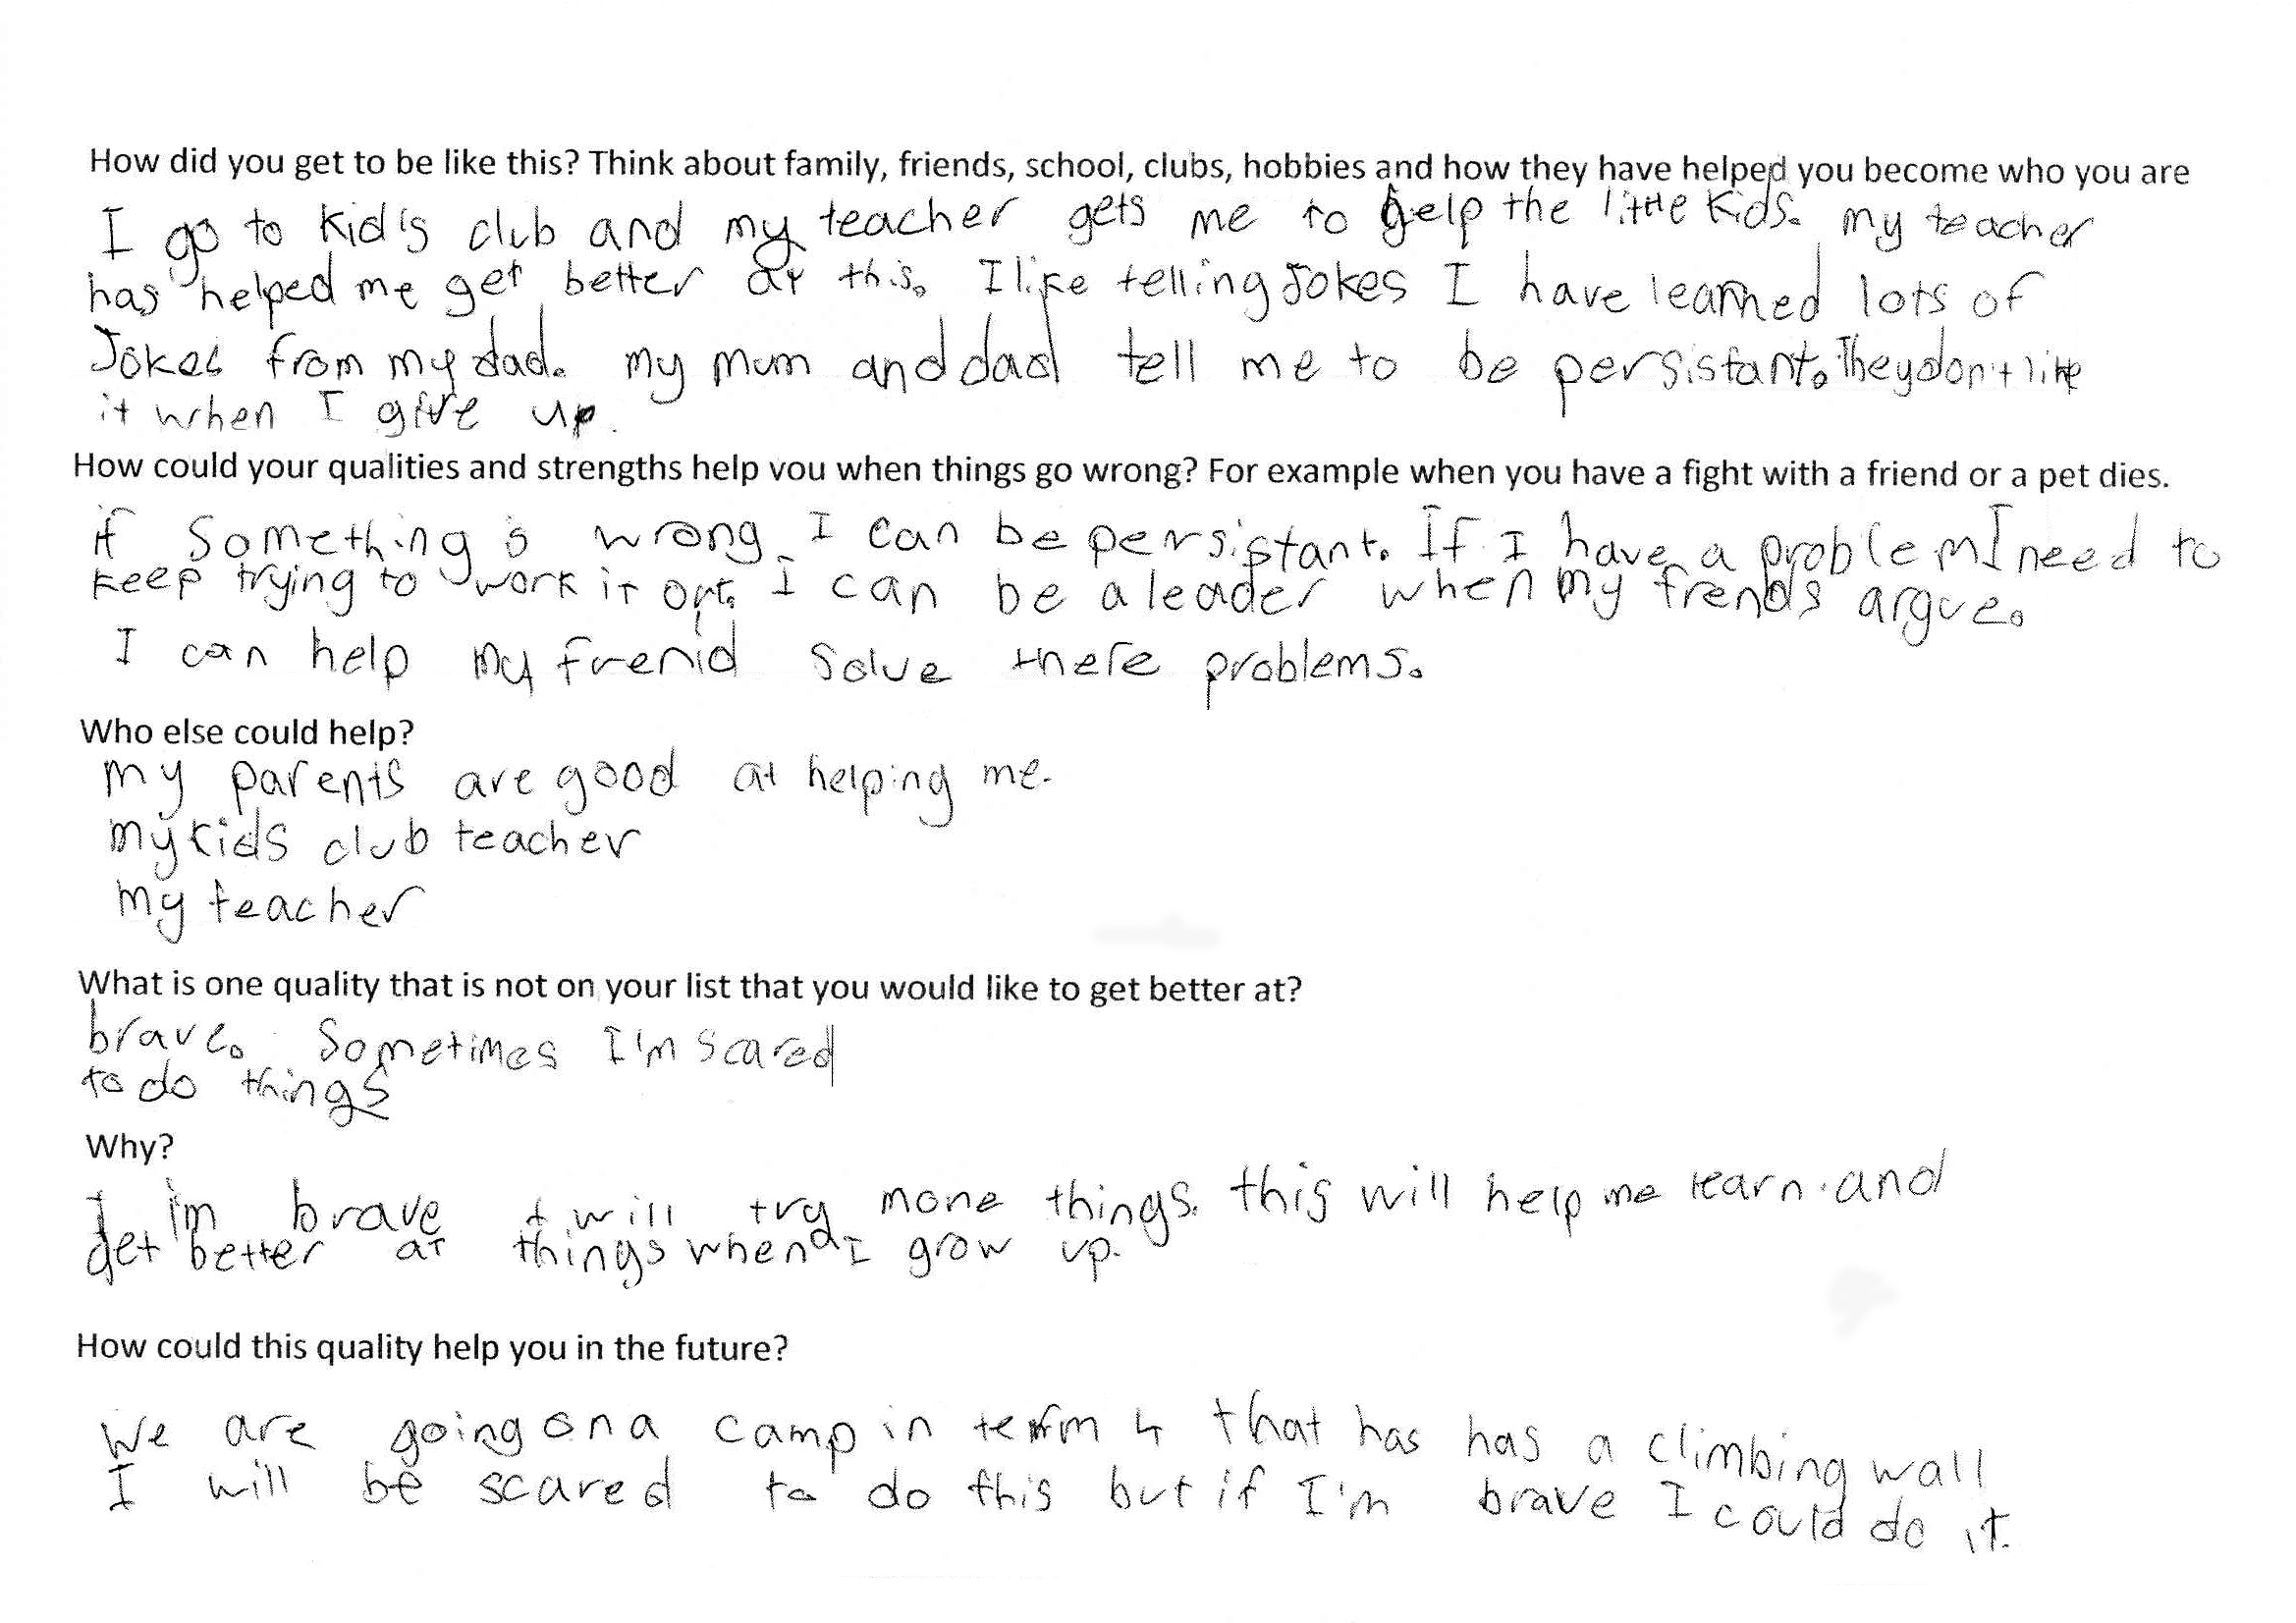 How did you get to be like this? Think about family, friends, school, clubs, hobbies and how they have helped you become who you are
I go to kid's club and my teacher gets me to help the little kids. my teacher
has helped me get better at this. I like telling Jokes I have learned lots of
Jokes from my dad. my mum and dad tell me to be persistant. They don't like
it when I give up.
How could your qualities and strengths help you when things go wrong? For example when you have a fight with a friend or a pet dies.
if something is wrong I can be persistant. If I have a problem I need to
keep trying to work it out. I can be a leader when my frends argue.
I can help my frenid solve there problems.
Who else could help?
my parents are good at helping me.
my kids club teacher
my teacher
What is one quality that is not on your list that you would like to get better at?
brave. Sometimes I'm scared
to do things
Why?
I im brave I will try more things. this will help me learn and
get better at things when I grow up.
How could this quality help you in the future?
We are going on a camp in term 4 that has has a climbing wall
I will be scared to do this but if I'm brave I could do it.